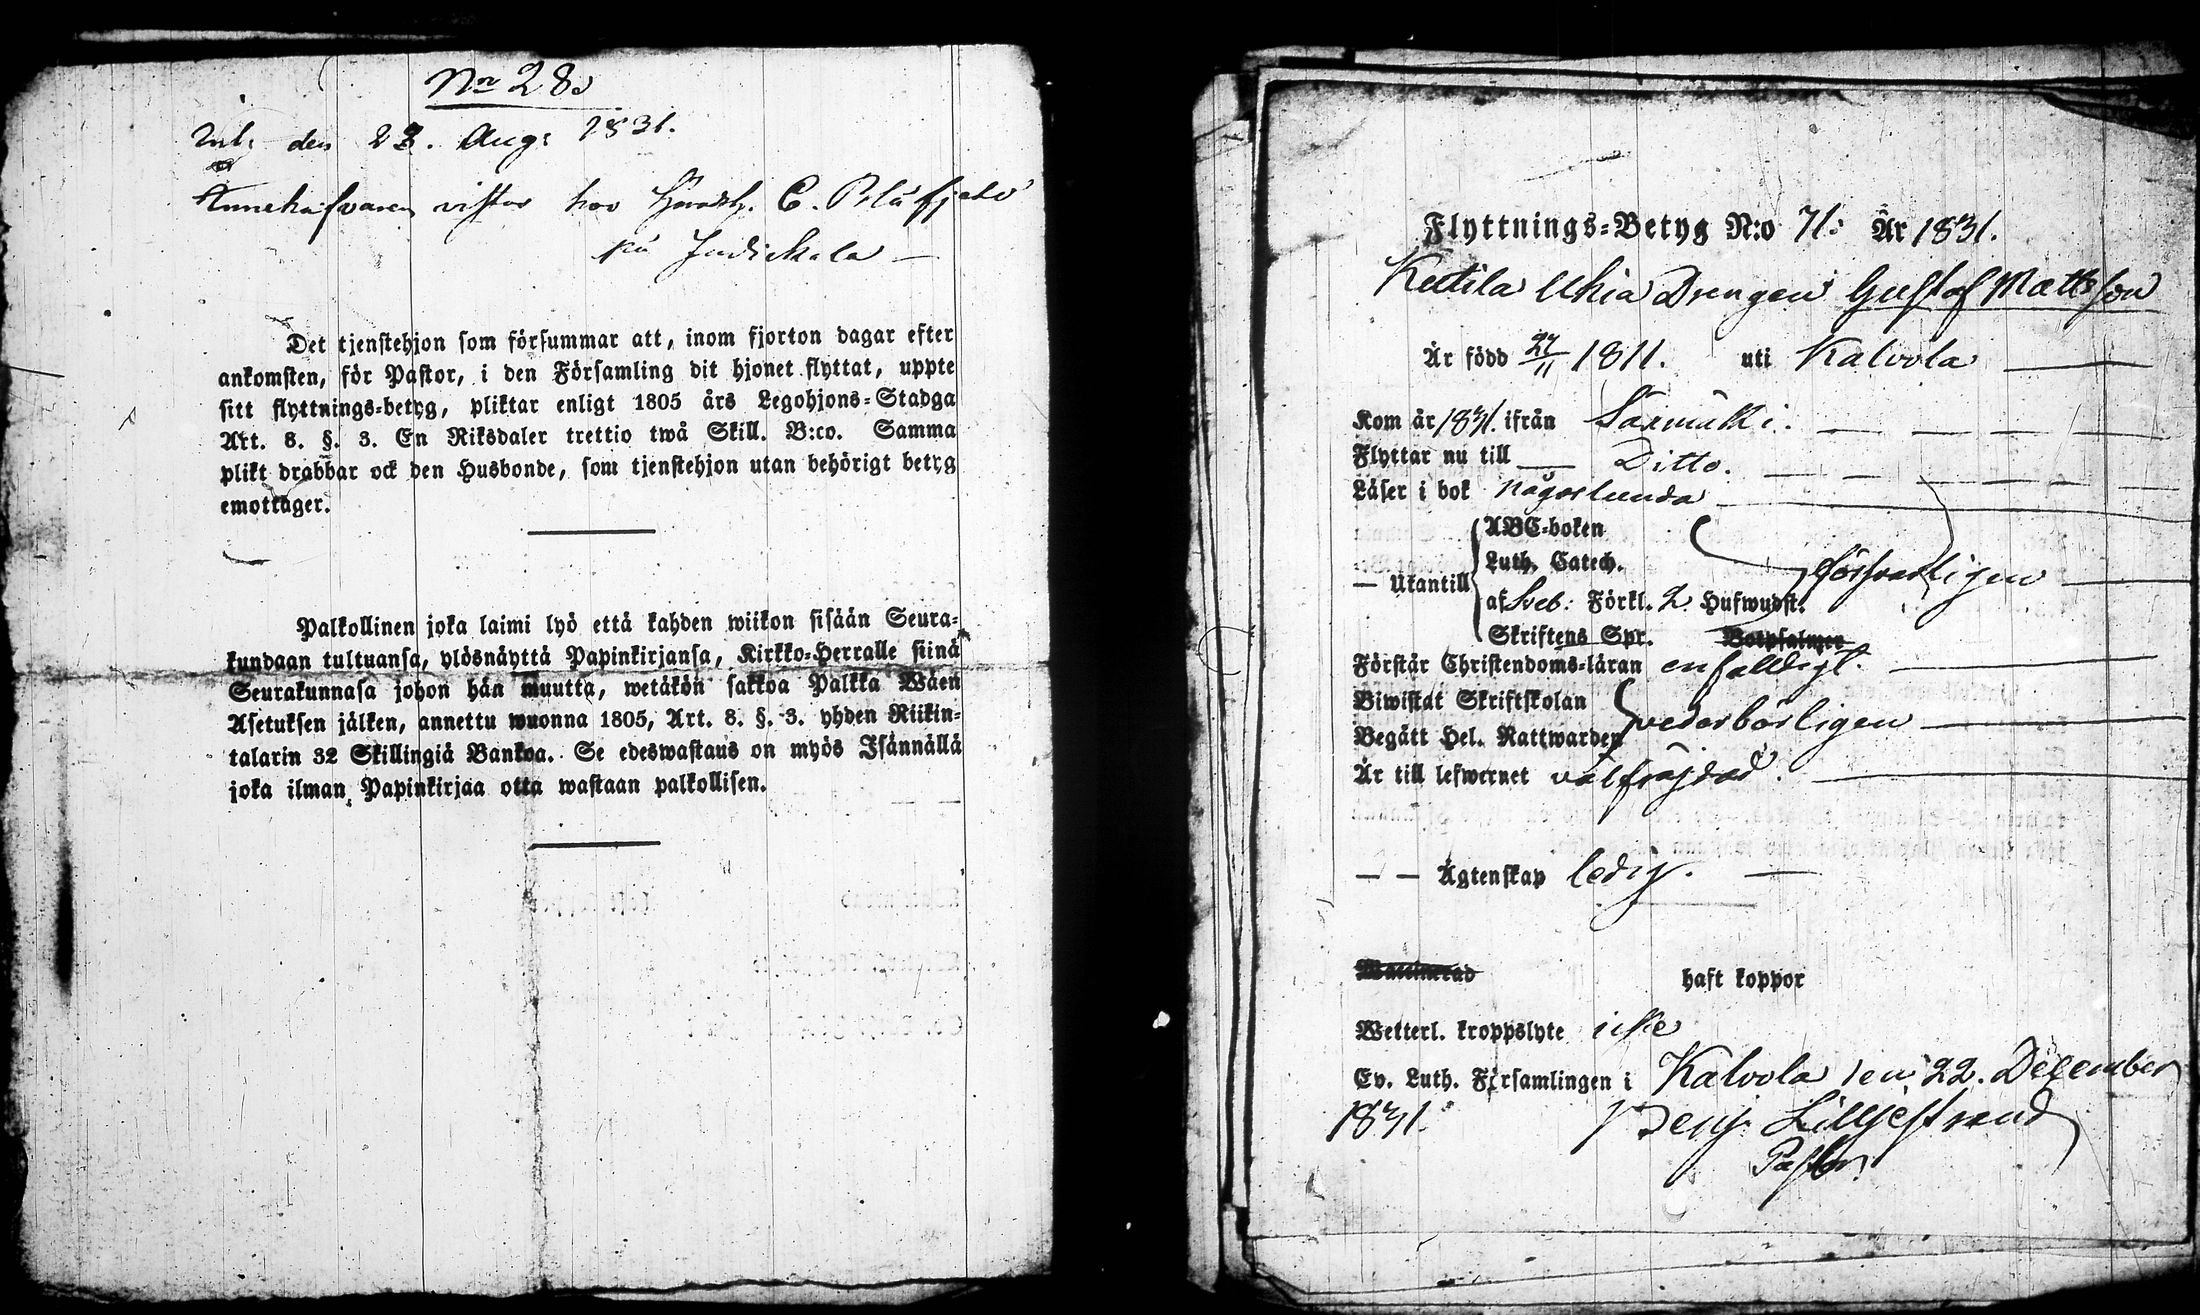 Nr 28
Inl. den 23. Aug: 1831.
Innehafvaren vistas hos Häradsh. C. Blåfjeld
på Judickala —
Det tjenstehjon som försummar att, inom fjorton dagar efter
ankomsten, för Pastor, i den Församling dit hjonet flyttat, uppte
sitt flyttnings-betyg, pliktar enligt 1805 års Legohjons-Stadga
Art. 8. §. 3. En Riksdaler trettio twå Skill. B:co. Samma
plikt drabbar ock den Husbonde, som tjenstehjon utan behörigt betyg
emottager.
Palkollinen joka laimi lyö että kahden wiikon sisään Seura-
kundaan tultuansa, ylösnäyttä Papinkirjansa, Kirkko-Herralle siinä
Seurakunnasa johon hän muutta, wetäkön sakkoa Palkka Wäen
Asetuksen jälken, annettu wuonna 1805, Art. 8. §. 3. yhden Riikin-
talarin 32 Skillingiä Bankoa. Se edeswastaus on myös Isännällä
joka ilman Papinkirjaa otta wastaan palkollisen.
Flyttnings-Betyg N:o 71. År 1831.
Kutila Uhia Drengen Gustaf Mattsson
Är född 27/11 1811. uti Kalvola
Kom år 1831. ifrån Säxmäkki.
Flyttar nu till Ditto.
Läser i bok någorlunda
— Utantill
ABC-boken
Luth. Catech.
af Sveb: Förkl. 2 Hufwudst.
försvarligen
Skriftens Spr. Botpsalmer
Förstår Christendoms-läran enfaldigt.
Biwistat Skriftskolan
Begått Hel. Nattwarden vederbörligen
Är till lefwernet välfräjdad.
— — Ägtenskap ledig.
Waccinerad haft koppor
Wetterl. kroppslyte icke
Ev. Luth. Församlingen i Kalvola den 22. December
1831. Benj. Lilljestrand
Pastor.